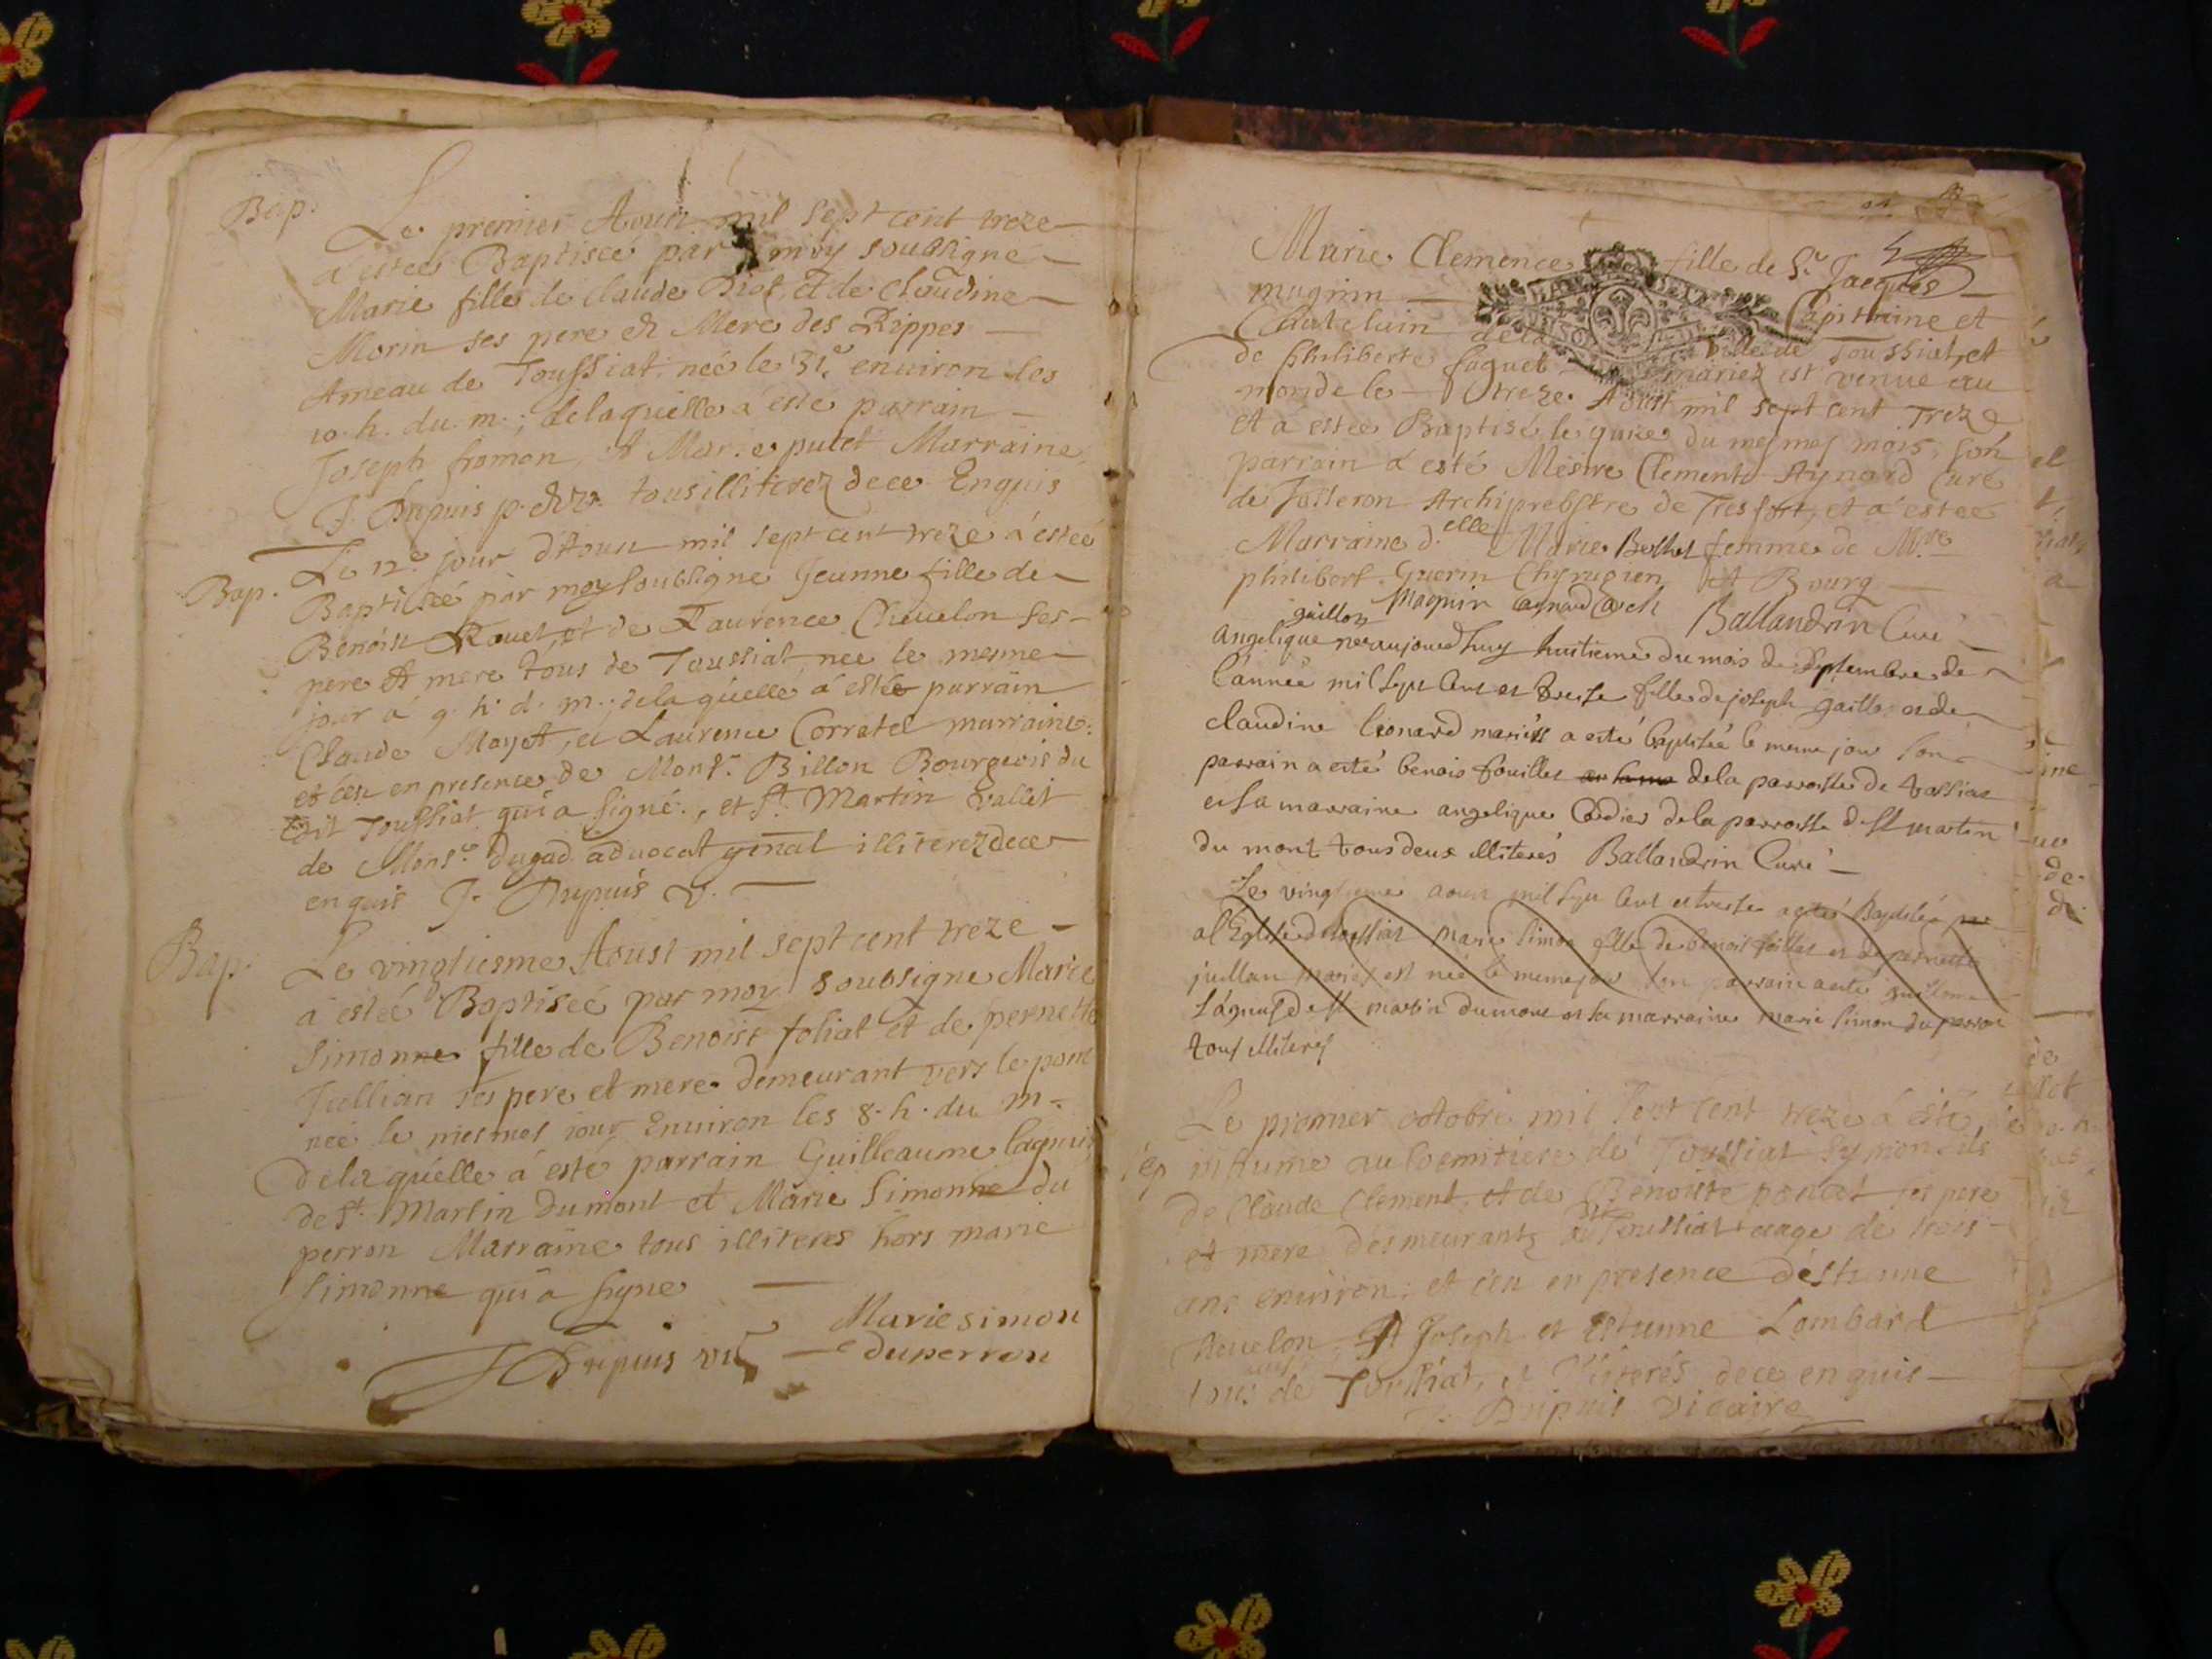 Bap.
Le premier Aoust mil sept cent treze
a estée Baptisée par moy soubsigné
Marie fille de Claude Biot et de Claudine
Morin ses pere et Mere des Rippes
Ameau de Toussiat née le 31.e enuiron les
10. h. du. m.; delaquelle a esté parrain
Joseph fromon, et Marie putet Marraine
J. Dupuis tous illiterez de ce Enquis
Bap.
Le 12.e jour d'Aoust mil sept cent treze a estée
Baptisée par moy soubsigné Jeanne fille de
Benoist Rouet, et de Laurence Cheuelon ses
pere et mere tous de Toussiat née le mesme
jour a 9. h. d. m.; delaquelle a estée parrain
Claude Moyet, et Laurence Corratel marraine.
et ceu en presence de Mons.r Billon Bourgeois du
dit Toussiat qui a signé., et St. Martin Vallet
de Mons.r dugad aduocat illiterez de ce
enquis J. Dupuis V.
Bap.
Le vingtiesme Aoust mil sept cent treze
a estée Baptisée par moy soubsigné Marie
Simonne fille de Benoist foliat et de pernette
Jullian ses pere et mere demeurant vers le pont
née le mesmes jour Enuiron les 8. h. du m.
delaquelle a esté parrain Guilleaume laguui
de St. Martin Dumont et Marie Simonne du
perron Marraine tous illiteres hors marie
Simonne qui a signé
Marie simon
JDupuis vic duperron
Marie Clemence fille de S.r Jacques
magnin Capitaine et
Chatelain de la ville de Toussiat, et
de Philiberte faguet mariez est venue au
monde le treze Aoust mil sept cent Treze
et a estée Baptisé le quize du mesmes mois, son
parrain a esté Messire Clement Aynard Curé
de Jasseron Archiprebstre de Tresfort, et a estee
Marraine d.elle Marie Bollet femme de M.re
philibert Guerin Chyrugien et Bourg
magnin aynard Arch Ballandrin Curé
guillon
angelique née aujourdhuy huitieme du mois de Septembre de
l'année mil sept cent et treise fille de joseph guillo et de
claudine leonard mariéss a esté baptisée le meme jour son
parrain a esté benois fouillet dela parroisse de tassiat
et sa marraine angelique Cadier dela parroisse de st martin
du mont tous deux illiterés Ballandrin Curé
Le vingtieme aoust mil sept cent et treise a esté Baptisée par
al Eglise de tossiat marie simon fille de benoit foillet et de pernette
juillan mariés est née le meme jour son parrain a esté guillome
lagnuf de st martin dumont et sa marraine marie simon duperron
tous illiterés
Sep
Le premier octobre mil sept cent treze a esté
inhumé au Coemitiere de Toussiat Symon fils
de Claude Clement, et de Benoiste poncet ses pere
et mere desmeurantz a Toussiat eage de trois
ans enuiron; et ceu en presence d'estienne
cheuelon, et Joseph et Estienne Lombard
tous de Toussiat, et illiterés de ce enquis
J. Dupuis Vicaire